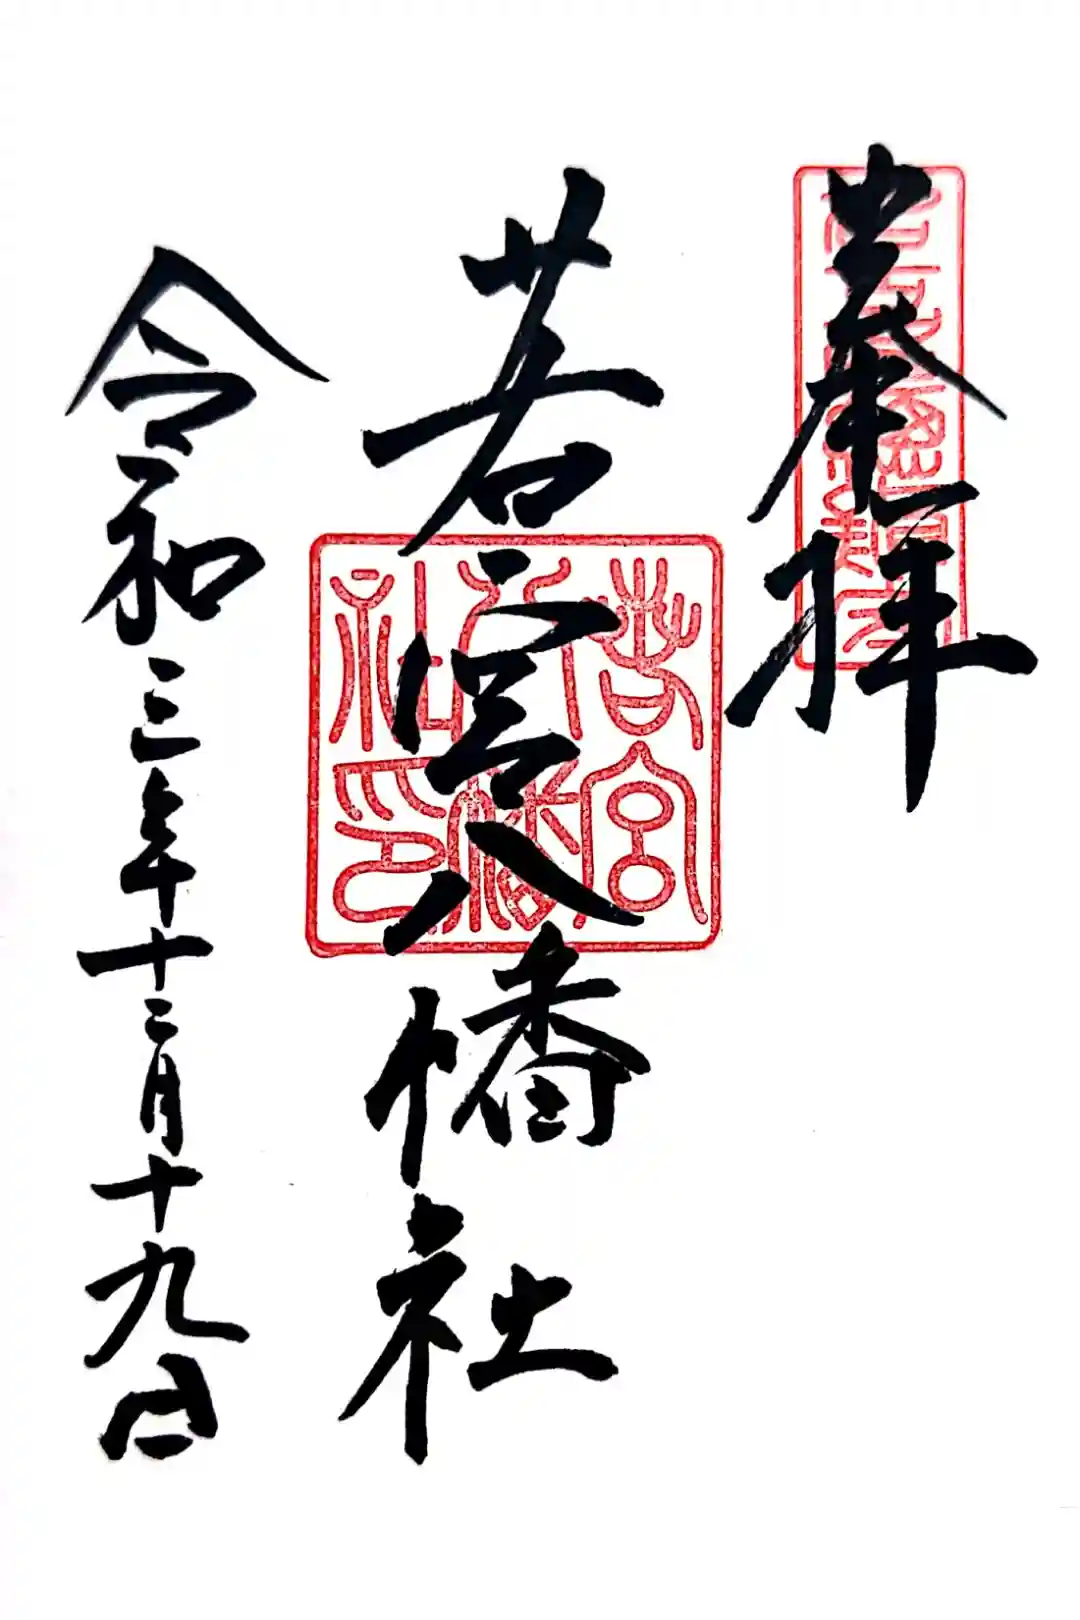 奉拝
若宮八幡社
若宮八幡社印
令和三年十二月十九日